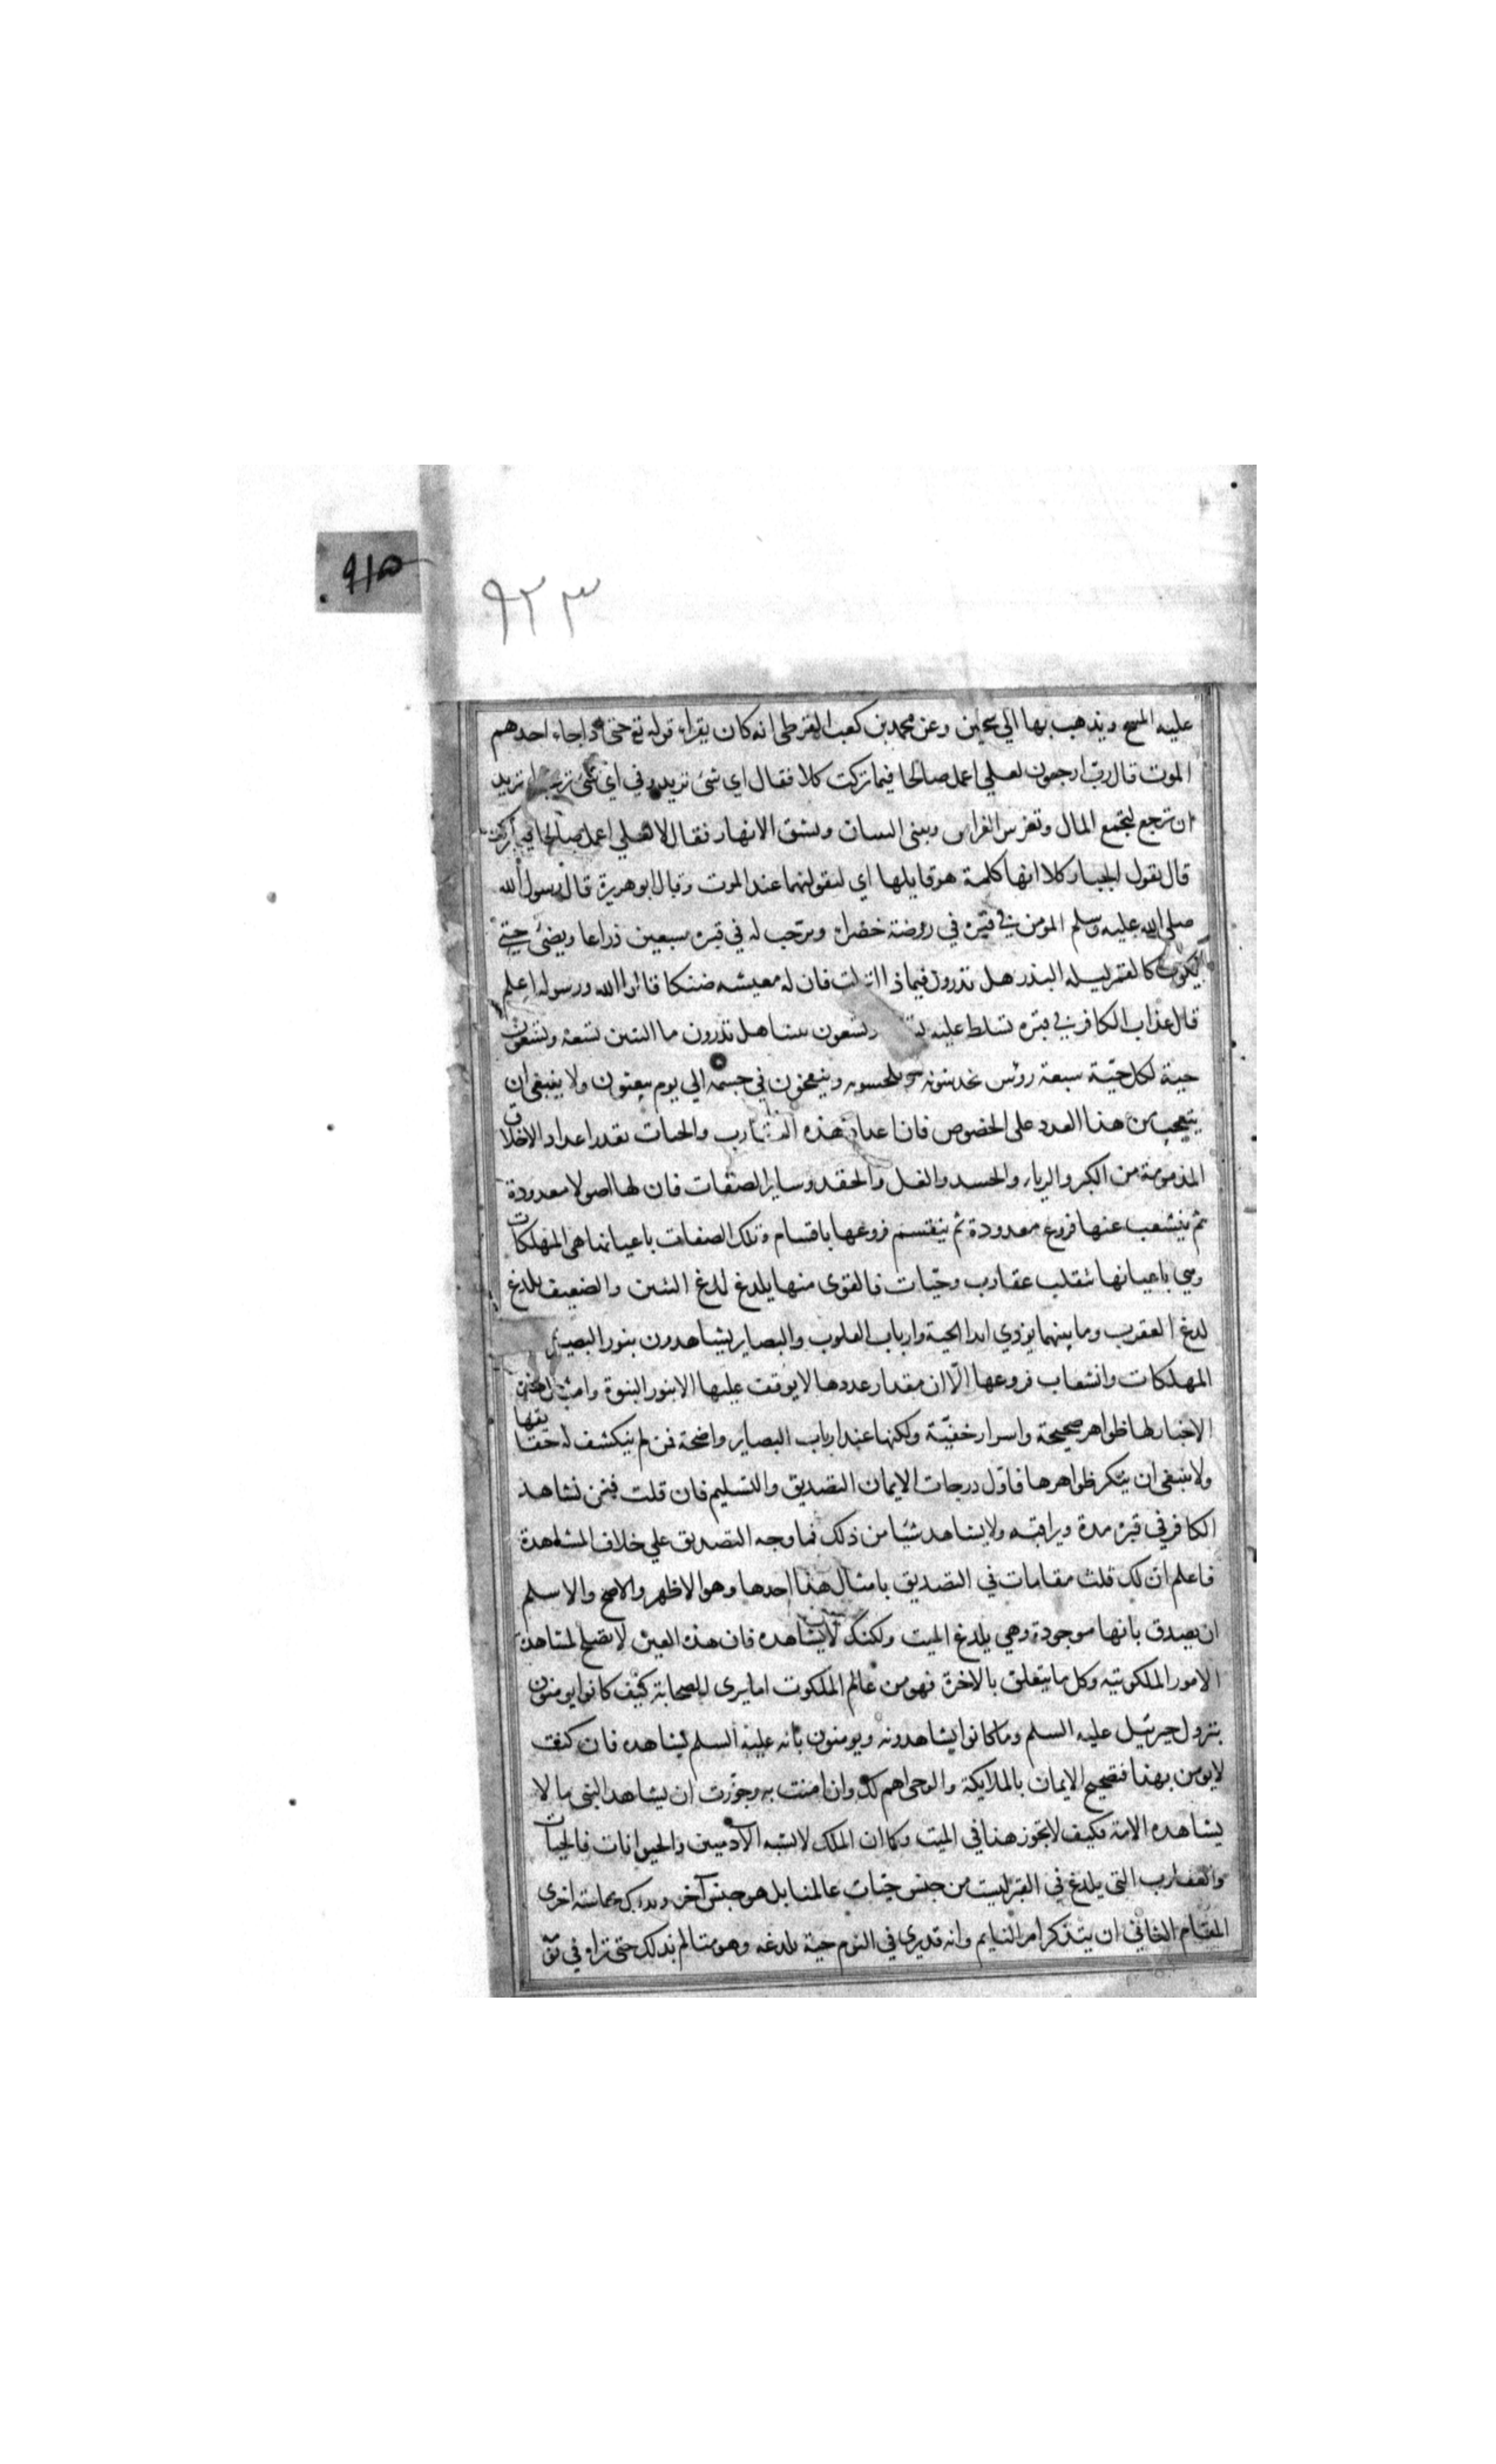 ۹۱۵
۹۲۳
عليه المسح ويذهب بها الي سجين وعن محمد بن كعب القرظي انه كان يقراء قوله تع حتي اذا جاء احدهم
الموت قال رب ارجعون لعلي اعمل صالحا فيما تركت كلا فقال اي شئ تريد وفي اي شئ تريد
ان ترجع لتجمع المال وتغرس الغراس وتبني البنيان وتشق الانهار فقال لا لعلي اعمل صالحا فيما تركت
قال يقول الجبار كلا انها كلمة هو قايلها اي ليقولنها عند الموت وقال ابو هريرة قال رسول الله
صلي الله عليه وسلم المومن في قبره في روضة خضراء ويرحب له في قبره سبعين ذراعا ويضئ حتي
يكون كالقمر ليله البدر هل تدرون فيماذا انزلت فان له معيشه ضنكا قالوا الله ورسوله اعلم
قال عذاب الكافر في قبره تسلط عليه وتسعون تنينا هل تدرون ما التنين تسعة وتسعون
حية لكل حيّة سبعة رؤس يخدشونه ويلحسونه وينفخون في جسمه الي يوم يبعثون ولا ينبغي ان
يتعجب من هذا العدد علي الخصوص فان اعداد هذه العقارب والحيات بقدر اعداد الاخلاق
المذمومة من الكبر والرياء والحسد والغل والحقد وساير الصفات فان لها اصولا معدودة
ثم ينشعب عنها فروع معدودة ثم ينقسم فروعها باقسام وتلك الصفات باعيانها هي المهلكات
وهي باعيانها تنقلب عقارب وحيّات فالقوي منها يلدغ لدغ التنين والضعيف يلدغ
لدغ العقرب وما بينهما يوذي ايذا الحية وارباب القلوب والبصاير يشاهدون بنور البصيرة
المهلكات وانشعاب فروعها الّا ان مقدار عددها لا يوقف عليها الا بنور النبوة وامثال هذه
الاخبار لها ظواهر صحيحة واسرار خفيّة ولكنها عند ارباب البصاير واضحة فمن لم ينكشف له حقايقها
ولا ينبغي ان ينكر ظواهرها فاول درجات الايمان التصديق والتسليم فان قلت فنحن نشاهد
الكافر في قبره مدة ونراقبه ولا يشاهد شيئا من ذلك فما وجه التصديق علي خلاف المشاهدة
فاعلم ان لك ثلث مقامات في التصديق بامثال هذا احدها وهو الاظهر والاصح والاسلم
ان يصدق بانها موجودة وهي يلدغ الميت ولكنك لا يشاهده فان هذه العين لا يصلح لمشاهدة
الامور الملكوتيه وكل ما يتعلق بالاخرة فهو من عالم الملكوت اما يري الصحابة كيف كانوا يومنون
بنزول جبرئيل عليه السلم وما كانوا يشاهدونه ويومنون بانه عليه السلم يشاهده فان كنت
لا يومن بهذا فتصحيح الايمان بالملايكة والوحي اهم لك وان امنت به وجوّزت ان يشاهد النبي ما لا
يشاهده الامة فكيف لا يجوز هذا في الميت وكما ان الملك لا يشبه الآدميين والحيوانات فالحيات
والعقارب التي يلدغ في القبر ليست من جنس حيّات عالمنا بل هو جنس آخر ويدرك بحاسة اخري
المقام الثاني ان يتذكر امر النايم وانه قد يري في النوم حيّة يلدغه وهو متالم بذلك حتي تراه في نو